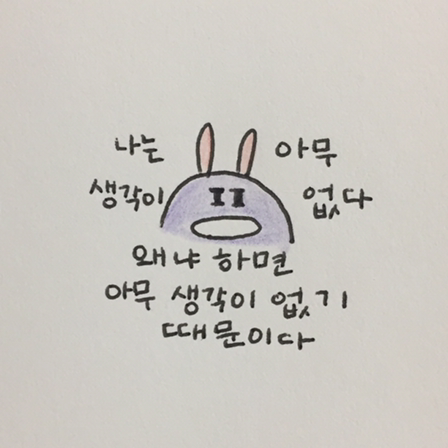 나는 아무
생각이 없다
왜냐하면
아무 생각이 없기
때문이다